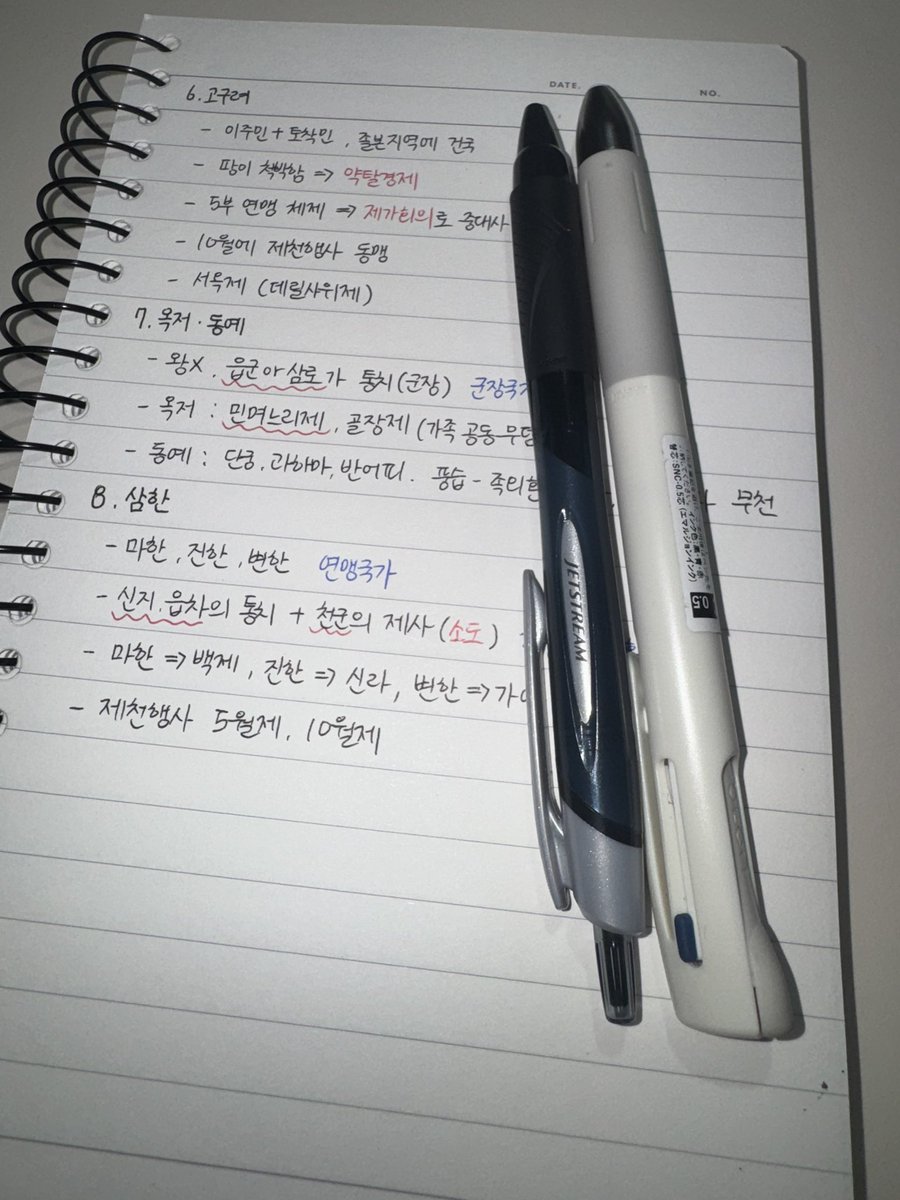 DATE.
NO.
6. 고구려
- 이주민 + 토착민, 졸본지역에 건국
- 땅이 척박함 => 약탈경제
- 5부 연맹 체제 => 제가회의로 중대사
- 10월에 제천행사 동맹
- 서옥제 (데릴사위제)
7. 옥저·동예
- 왕X. 읍군아 삼로가 통치(군장) 군장국가
- 옥저 : 민며느리제, 골장제 (가족 공동무덤
- 동예 : 단궁, 과하마, 반어피. 풍습 - 족외혼 무천
8. 삼한
- 마한, 진한, 변한 연맹국가
- 신지, 읍차의 통치 + 천군의 제사 (소도)
- 마한 => 백제, 진한 => 신라, 변한 => 가야
- 제천행사 5월제, 10월제
JETSTREAM
0.5